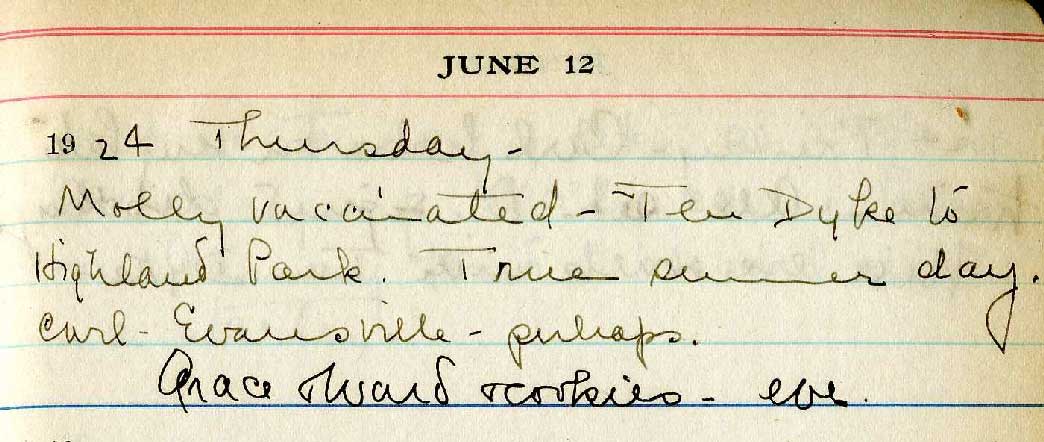 JUNE 12
1924 Thursday-
Molly vaccinated - Ten Dyke to
Highland Park. True summer day.
Carl - Evansville - perhaps.
Grace Ward + cookies - eve.